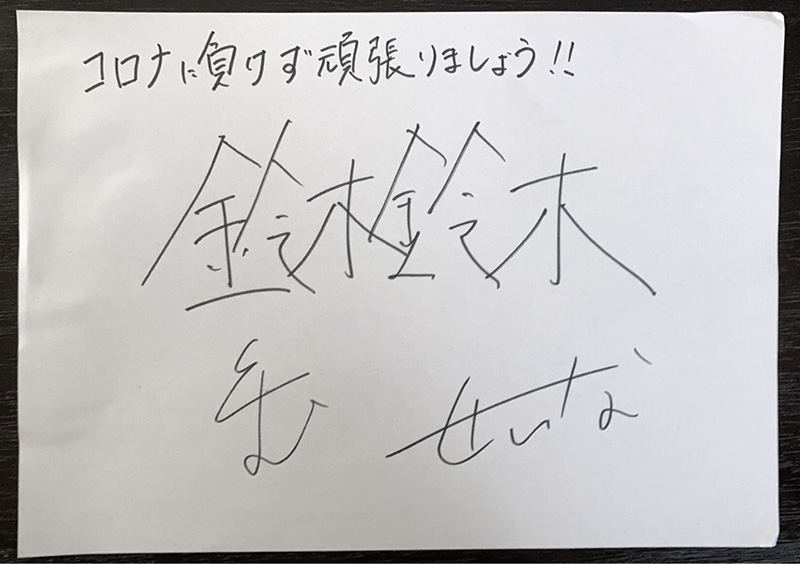 コロナに負けず頑張りましょう!!
鈴木鈴木
せいな